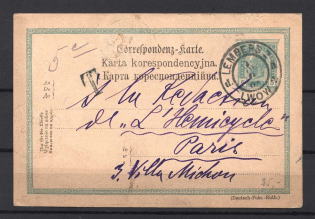 Correspondenz-Karte.
Karta korespondencyjna.
Карта кореспонденцийна.
LEMBERG
LWÓW
T
A la Rédaction
de "L'Hémicycle"
Paris
3. Villa Michon
(Deutsch-Poln.-Ruth.)